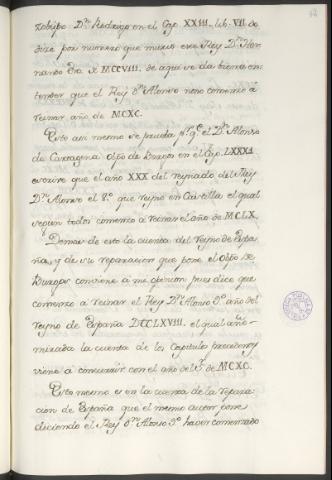 zobispo Dn. Rodrigo en el Cap. XXIII. lib. VII do
dize por numeros que murio este Rey Dn. Her-
nando Era de MCCVIII. de aqui se da bien a en-
tender que el Rey Dn. Alonso nono comenzó á
reinar año de MCXC.
Esto asi mesmo se prueba pr. qe. el Dn. Alonso
de Cartagena Obpo de Burgos en el Cap. LXXXI
escrive que el año XXX del reynado del Rey
Dn. Alonso el 8º. que reyno en Castilla el qual
segun todos comenzo a reinar el año de MCLX.
Demas de esto la cuenta del Reyno de Espa-
ña, y de su reparacion que pone el Obpo de
Burgos conviene á mi opinion pues dice que
comenzo a reinar el Rey Dn. Alonso 9º. año del
reyno de España DCCLXVIII. el qual año
mirada la cuenta de los Capitulos precedentes
viene á concurrir con el año del Sr. de MCXC.
Esto mesmo es en la cuenta de la repara-
cion de España que el mesmo autor pone
diciendo el Rey Dn. Alonso 9º. haver comenzado